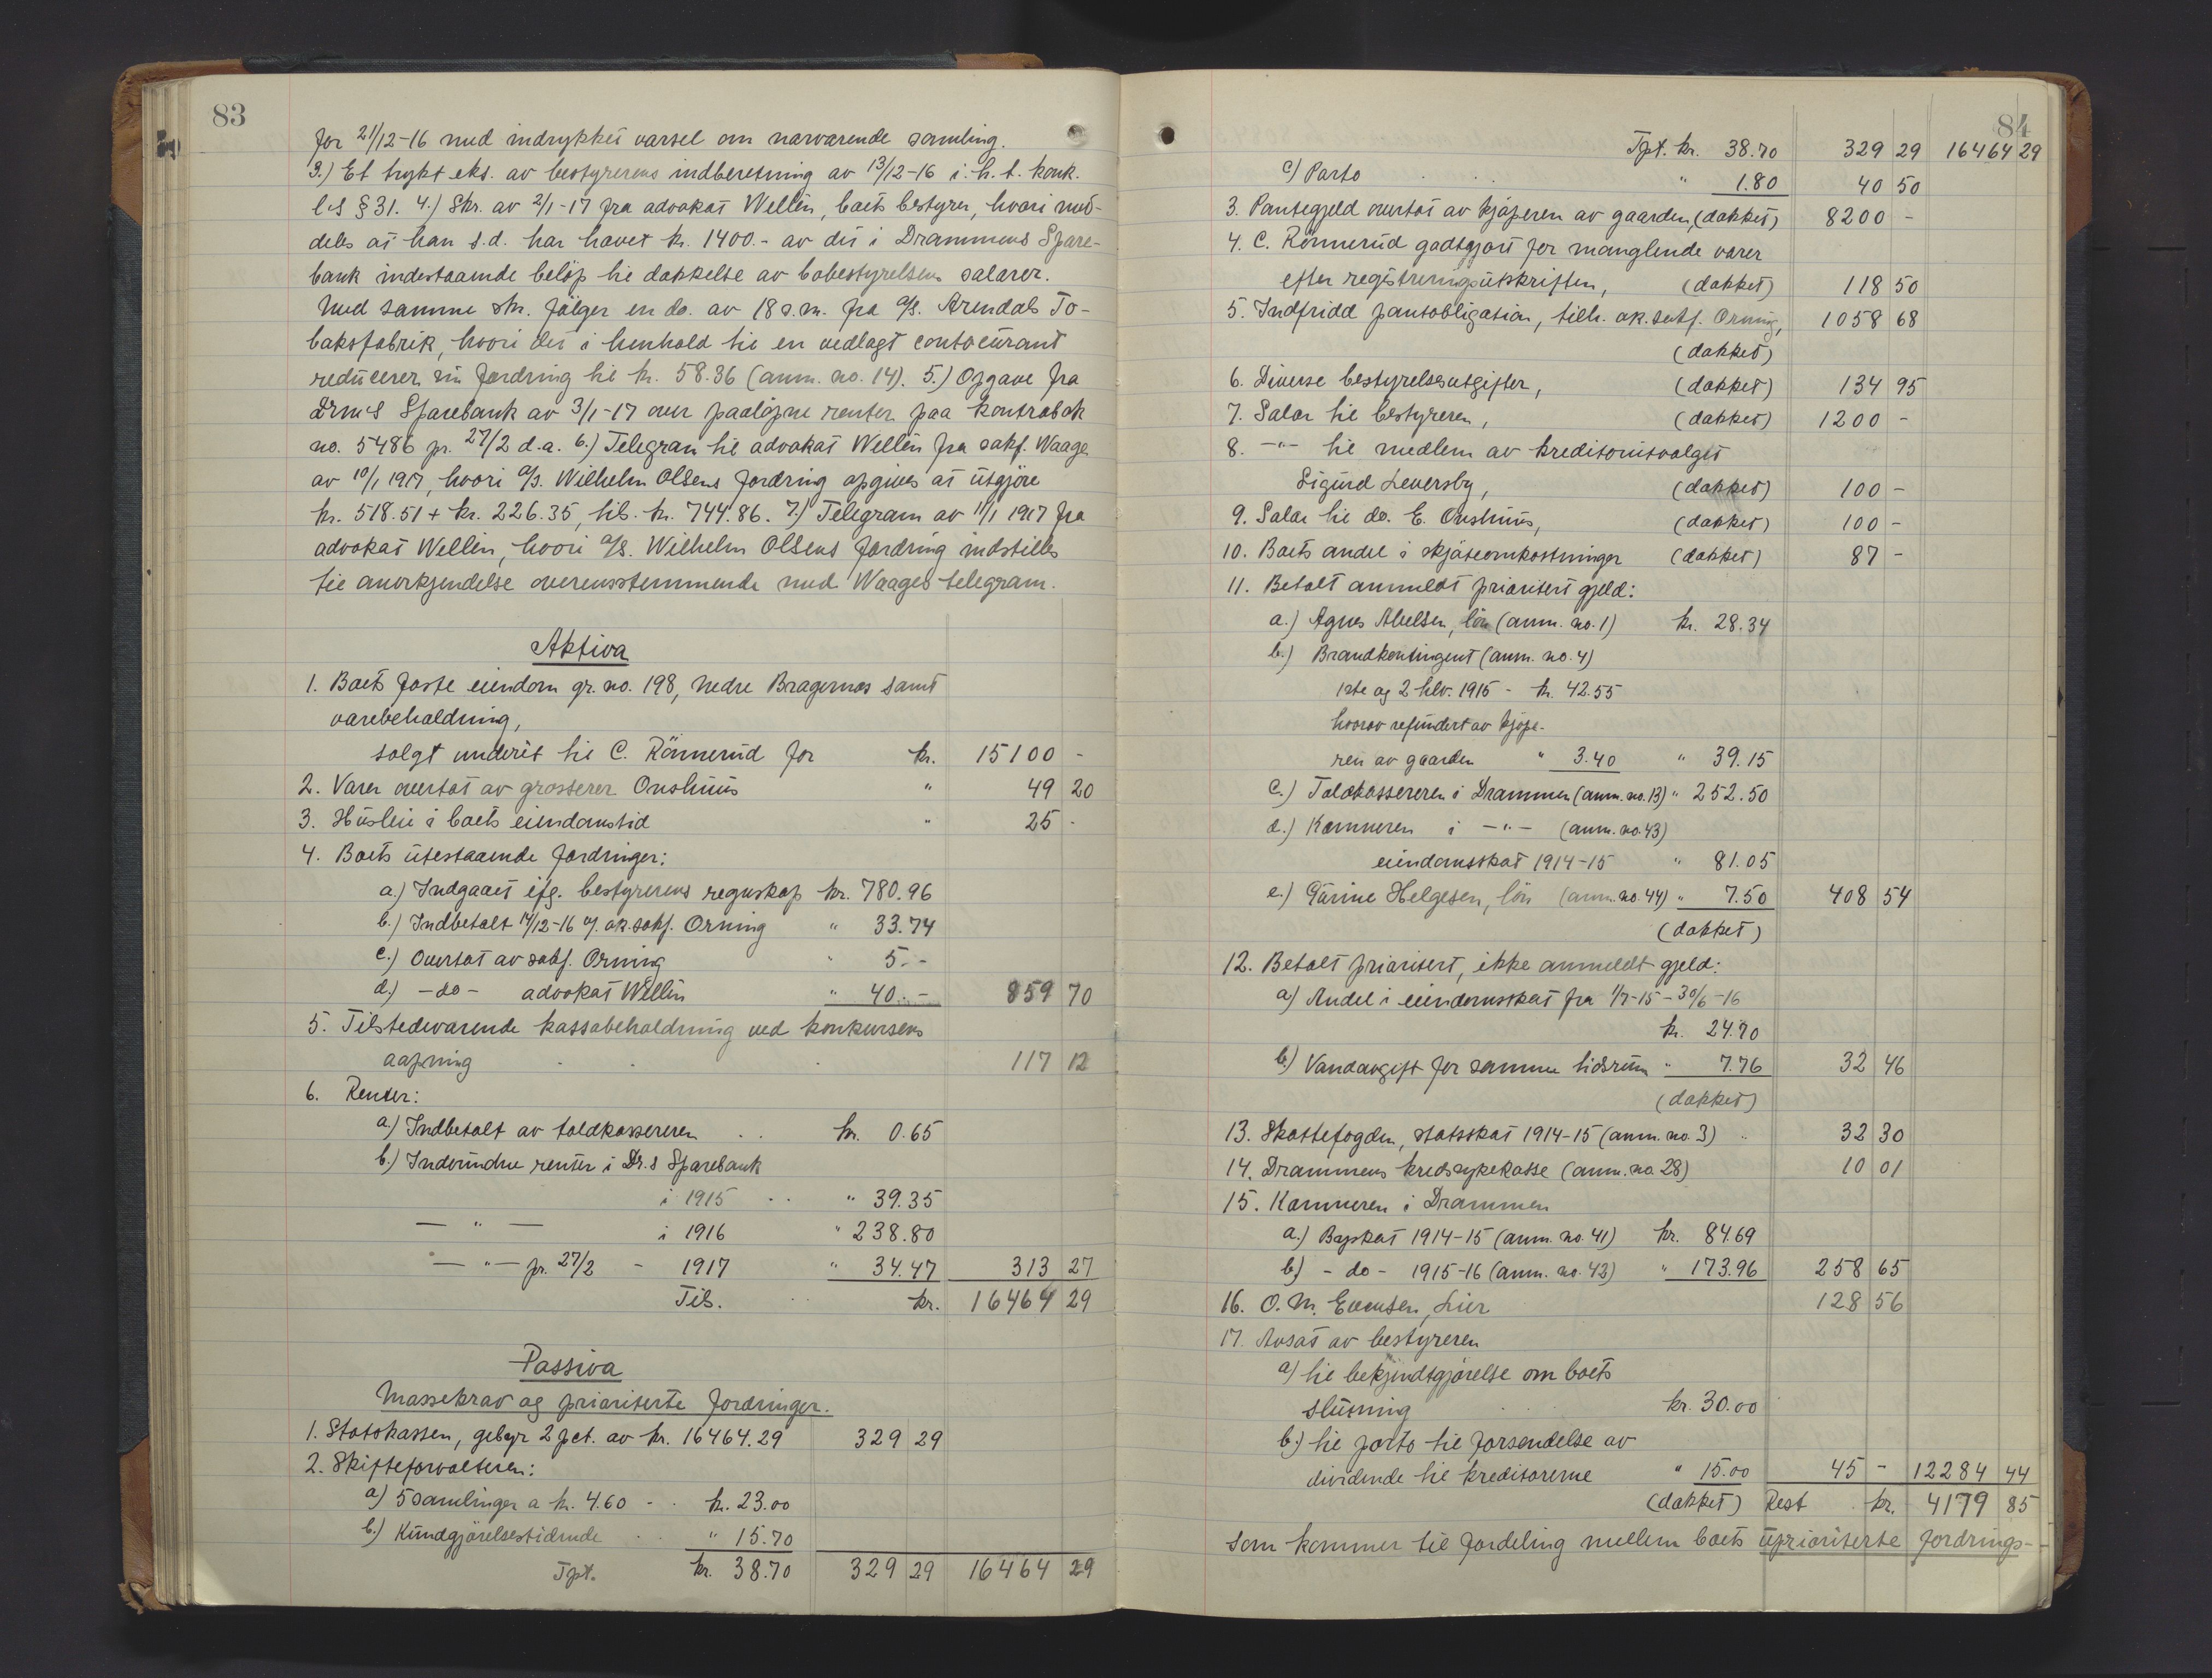 83
for 21/12-16 med indrykket varsel om nærværende samling.
3.) Et trykt eks. av bestyrerens indberetning av 13/12-16 i. h. t. konk.
l's § 31. 4.) Skr. av 2/1-17 fra advokat Wellén, boets bestyrer, hvori med-
deles at han s.d. har hævet kr. 1400.- av det i Drammens Spare-
bank indestaaende beløp til dækkelse av bobestyrelsens salærer.
Med samme skr. følger en do. av 18 s.m. fra a/s. Arendals To-
baksfabrik, hvori det i henhold til en vedlagt contocurant
reducerer sin fordring til kr. 58.36 (anm. no. 14). 5.) Opgave fra
Drm's Sparebank av 3/1-17 over paaløpne renter paa kontrabok
no. 5486 pr. 27/2 d.a. 6.) Telegram til advokat Wellén fra sakf. Waage
av 10/1 1917, hvori a/s. Wilhelm Olsens fordring opgives at utgjøre
kr. 518.51 + kr. 226.35, tils. kr. 744.86. 7.) Telegram av 11/1 1917 fra
advokat Wellén, hvori a/s. Wilhelm Olsens fordring indstilles
til anerkjendelse overensstemmende med Waages telegram.
Aktiva
1. Boets faste eiendom gr. no. 198, Nedre Bragernes samt
varebeholdning,
solgt underét til C. Rønnerud for kr. 15100 -
2. Varer overtat av grosserer Onshuus " 49 20
3. Husleie i boets eiendomstid " 25 -
4. Boets utestaaende fordringer:
a.) Indgaaet ifg. bestyrerens regnskap kr. 780.96
b.) Indbetalt 14/12-16 av o.r.sakf. Orning " 33.74
c.) Overtat av sakf. Orning " 5.-
d.) -do- advokat Wellén " 40.- 859 70
5. Tilstedeværende kassabeholdning ved konkursens
aapning 117 12
6. Renter:
a.) Indbetalt av toldkassereren kr. 0.65
b.) Indvundne renter i Dr.s Sparebank
i 1915 " 39.35
— " — i 1916 " 238.80
— " — pr. 27/2 - 1917 " 34.47 313 27
Tils. kr. 16464 29
Passiva
Massekrav og prioriterte fordringer.
1. Statskassen, gebyr 2 pct. av kr. 16464.29 329 29
2. Skifteforvalteren:
a) 5 samlinger a kr. 4.60 - kr. 23.00
b.) Kundgjørelsestidende " 15.70
Tpt. kr. 38.70 329 29 16464 29
84
Tpt. kr. 38.70 329 29 16464 29
c) Porto " 1.80 40 50
3. Pantegjeld overtat av kjøperen av gaarden, (dækket) 8200 -
4. C. Rønnerud godtgjort for manglende varer
efter registreringsutskriften, (dækket) 118 50
5. Indfridd pantobligation, tilh. o.r.sakf. Orning, 1058 68
(dækket)
6. Diverse bestyrelsesutgifter, (dækket) 134 95
7. Salær til bestyreren, (dækket) 1200 -
8. -"- til medlem av kreditorutvalget
Sigurd Leversby, (dækket) 100 -
9. Salær til do. E. Onshuus, (dækket) 100 -
10. Boets andel i skjøteomkostninger (dækket) 87 -
11. Betalt anmeldt prioritert gjeld:
a.) Agnes Abelsen, løn (anm. no. 1) kr. 28.34
b.) Brandkontingent (anm. no. 4)
1ste og 2 hlv. 1915 - kr. 42.55
hvorav refundert av kjøpe-
ren av gaarden " 3.40 " 39.15
c.) Toldkassereren i Drammen (anm. no. 13) " 252.50
d.) Kæmneren i -"- (anm. no. 43)
eiendomsskat 1914-15 " 81.05
e.) Helgesen, løn (anm. no. 44) " 7.50 408 54
(dækket)
12. Betalt prioritert, ikke anmeldt gjeld:
a) Andel i eiendomsskat fra 1/7-15 - 30/6-16
kr. 24.70
b.) Vandavgift for samme tidsrum " 7.76 32 46
(dækket)
13. Skattefogden, statsskat 1914-15 (anm. no. 3) 32 30
14. Drammens kredssykekasse (anm. no. 28) 10 01
15. Kæmneren i Drammen
a.) Byskat 1914-15 (anm. no. 41) kr. 84.69
b) - do - 1915-16 (anm. no. 42) " 173.96 258 65
16. O. M. Evensen, Lier 128 56
17. Avsat av bestyreren
a) til bekjendtgjørelse om boets
slutning kr. 30.00
b.) til porto til forsendelse av
dividende til kreditorerne " 15.00 45 - 12284 44
(dækket) Rest kr. 4179 85
som kommer til fordeling mellem boets uprioriterte fordrings-